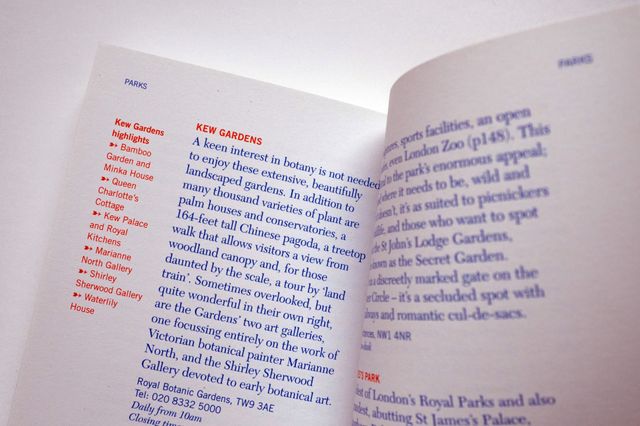 PARKS
Kew Gardens
highlights
➳ Bamboo
Garden and
Minka House
➳ Queen
Charlotte's
Cottage
➳ Kew Palace
and Royal
Kitchens
➳ Marianne
North Gallery
➳ Shirley
Sherwood Gallery
➳ Waterlily
House
KEW GARDENS
A keen interest in botany is not needed
to enjoy these extensive, beautifully
landscaped gardens. In addition to
many thousand varieties of plant are
palm houses and conservatories, a
164-feet tall Chinese pagoda, a treetop
walk that allows visitors a view from
woodland canopy and, for those
daunted by the scale, a tour by 'land
train'. Sometimes overlooked, but
quite wonderful in their own right,
are the Gardens' two art galleries,
one focussing entirely on the work of
Victorian botanical painter Marianne
North, and the Shirley Sherwood
Gallery devoted to early botanical art.
Royal Botanic Gardens, TW9 3AE
Tel: 020 8332 5000
Daily from 10am
Closing
PARKS
sports facilities, an open
even London Zoo (p148). This
to the park's enormous appeal;
where it needs to be, wild and
it's as suited to picnickers
and those who want to spot
St John's Lodge Gardens,
known as the Secret Garden.
a discreetly marked gate on the
Circle – it's a secluded spot with
and romantic cul-de-sacs.
NW1 4NR
PARK
of London's Royal Parks and also
abutting St James's Palace,